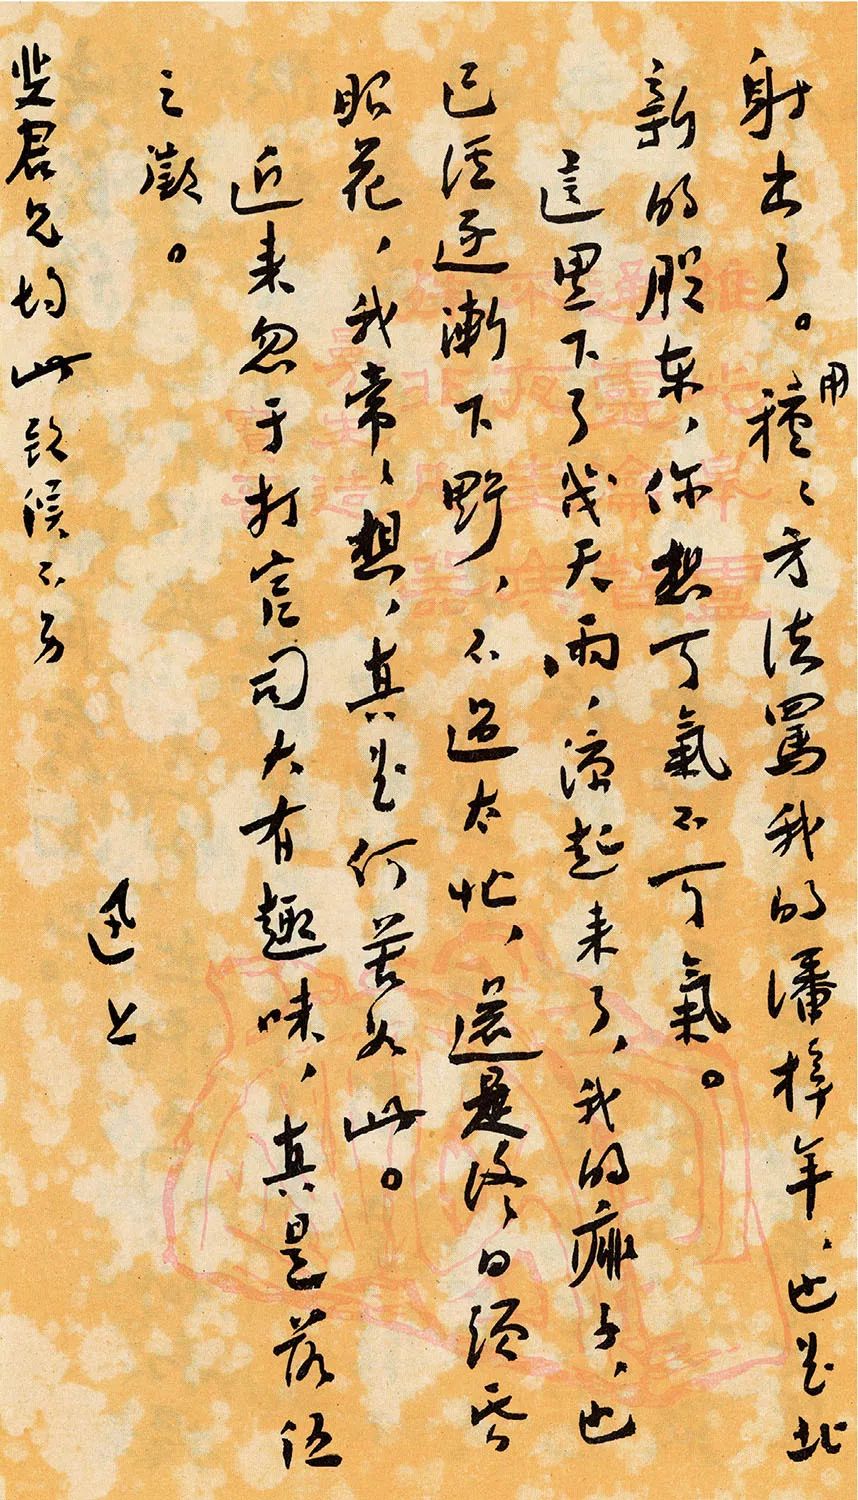 射出了。用種種方法罵我的潘梓年，也是北
新的股东，你想可氣不可氣。
這里下了幾天雨，涼起来了，我的痱子，也
已經逐漸下野，不過太忙，還是終日頭昏
眼花，我常常想，真是何苦如此。
近来忽于打官司大有趣味，真是落伍
之徵。
迅上
斐君兄均此致候不另